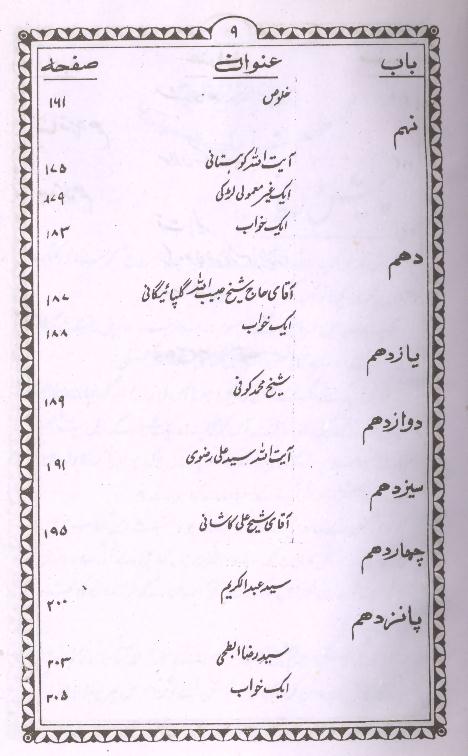 ۹
باب عنوان صفحہ
خلوص ۱۶۱
نہم
آیت اللہ کوہستانی ۱۷۵
ایک غیر معمولی لڑکی ۱۷۹
ایک خواب ۱۸۳
دھم
آقای حاج شیخ حبیب اللہ گلپائیگانی ۱۸۷
ایک خواب ۱۸۸
یازدھم
شیخ محمد کوفی ۱۸۹
دوازدھم
آیت اللہ سید علی رضوی ۱۹۱
سیزدھم
آقای شیخ علی کاشانی ۱۹۵
چہاردھم
سید عبدالکریم ۲۰۰
پانزدھم
سید رضا ابطحی ۲۰۳
ایک خواب ۲۰۵